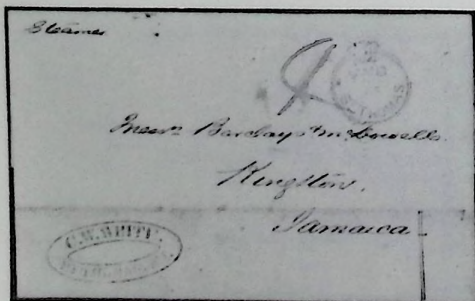 Steamer
ST. THOMAS
Messrs Barclay & McDowells
Kingston.
Jamaica
C.W. WHITE.